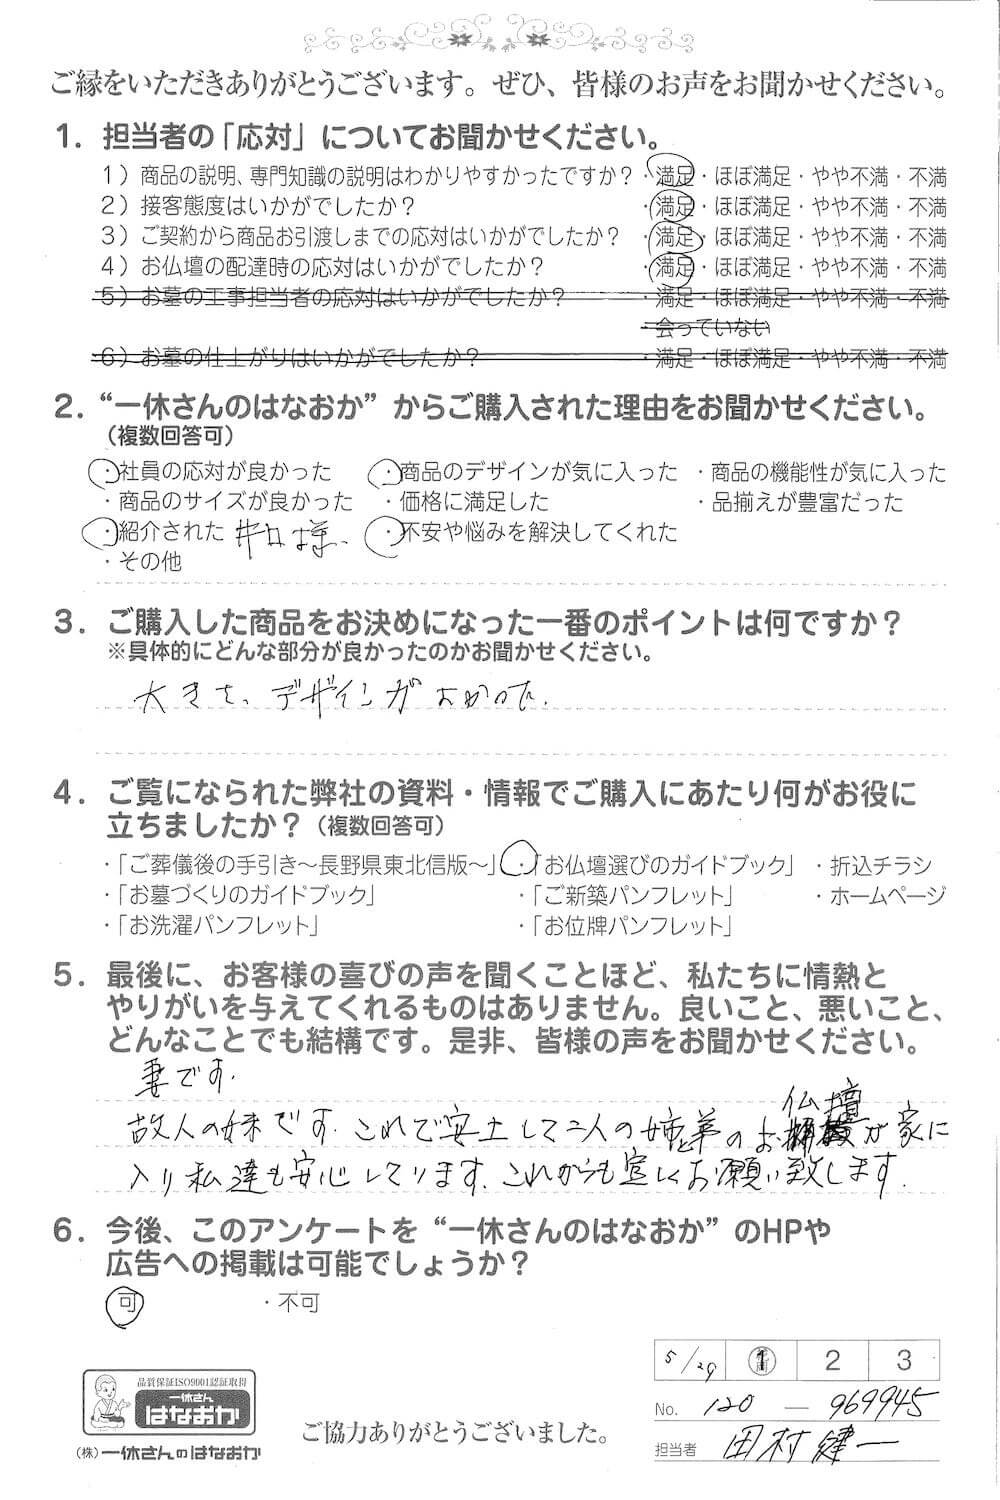 ご縁をいただきありがとうございます。ぜひ、皆様のお声をお聞かせください。
1. 担当者の「応対」についてお聞かせください。
1）商品の説明、専門知識の説明はわかりやすかったですか？ ・満足・ほぼ満足・やや不満・不満
2）接客態度はいかがでしたか？ ・満足・ほぼ満足・やや不満・不満
3）ご契約から商品お引渡しまでの応対はいかがでしたか？ ・満足・ほぼ満足・やや不満・不満
4）お仏壇の配達時の応対はいかがでしたか？ ・満足・ほぼ満足・やや不満・不満
5）お墓の工事担当者の応対はいかがでしたか？ ・満足・ほぼ満足・やや不満・不満
・会っていない
6）お墓の仕上がりはいかがでしたか？ ・満足・ほぼ満足・やや不満・不満
2. “一休さんのはなおか”からご購入された理由をお聞かせください。
（複数回答可）
・社員の応対が良かった ・商品のデザインが気に入った ・商品の機能性が気に入った
・商品のサイズが良かった ・価格に満足した ・品揃えが豊富だった
・紹介された 様、 ・不安や悩みを解決してくれた
・その他
3. ご購入した商品をお決めになった一番のポイントは何ですか？
※具体的にどんな部分が良かったのかお聞かせください。
大きさ、デザインがよかった.
4. ご覧になられた弊社の資料・情報でご購入にあたり何がお役に
立ちましたか？（複数回答可）
・「ご葬儀後の手引き〜長野県東北信版〜」 ・「お仏壇選びのガイドブック」 ・折込チラシ
・「お墓づくりのガイドブック」 ・「ご新築パンフレット」 ・ホームページ
・「お洗濯パンフレット」 ・「お位牌パンフレット」
5. 最後に、お客様の喜びの声を聞くことほど、私たちに情熱と
やりがいを与えてくれるものはありません。良いこと、悪いこと、
どんなことでも結構です。是非、皆様の声をお聞かせください。
妻です.
故人の妹です. これで安土して二人の姉弟のお仏壇が家に
入り私達も安心しています. これからも宜しくお願い致します.
6. 今後、このアンケートを“一休さんのはなおか”のHPや
広告への掲載は可能でしょうか？
可 ・不可
5/29 2 3
No. 120 — 969945
担当者 田村健一
品質保証ISO9001認証取得
一休さん
はなおか
（株）一休さんのはなおか
ご協力ありがとうございました。